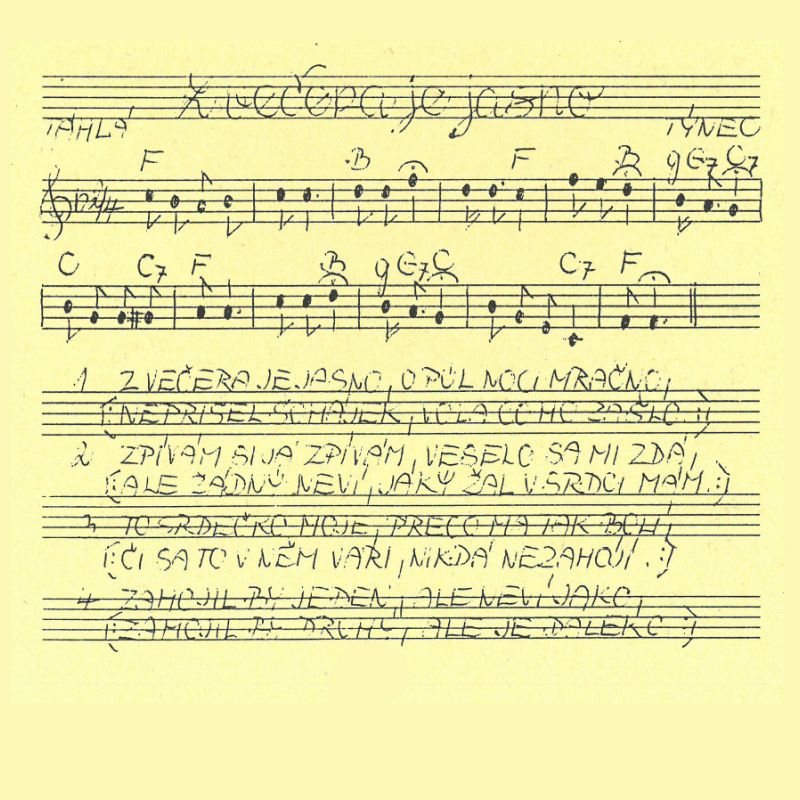 Z večera je jasno
TÁHLÁ TÝNEC
F B F B g G7 C7
2/4
C C7 F B g G7 C C7 F
1 Z VEČERA JE JASNO, O PŮL NOCI MRAČNO,
(: NEPRIŠEL ŠOHAJEK, VOLA CO HO ZAŠLO :)
2 ZPÍVÁM SI JÁ ZPÍVÁM, VESELO SA MI ZDÁ,
(: ALE ŽÁDNÝ NEVÍ, JAKÝ ŽAL V SRDCI MÁM. :)
3 TO SRDEČKO MOJE, PRECO MA TAK BOLÍ,
(: ČI SA TO V NĚM VAŘÍ, NIKDÁ NEZAHOJÍ . :)
4 ZAHOJIL BY JEDEN, ALE NEVÍ JAKO,
(: ZAHOJIL BY DRUHÝ, ALE JE DALEKO :)